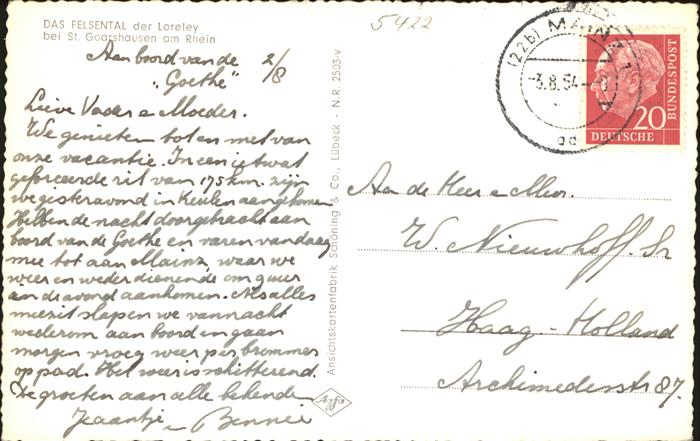 DAS FELSENTAL der Loreley
bei St. Goarshausen am Rhein
5422
Aan boord van de 2/8
"Goethe"
Lieve Vader & Moeder.
We genieten tot en met van
onze vacantie. In een ietwat
geforceerde rit van 175 km. zijn
we gisteravond in Keulen aangekomen
Hebben de nacht doorgebracht aan
boord van de Goethe en varen vandaag
mee tot aan Mainz, waar we
weer en weder dienende, om uur
in de avond aankomen. Als alles
meezit slapen we vannacht
wederom aan boord en gaan
morgen vroeg weer per brommer
op pad. Het weer is schitterend.
De groeten aan alle bekenden
Jeaantje - Bennie
Ansichtskartenfabrik Schöning & Co., Lübeck - N.R. 2503-v
Agfa
(22b) MAINZ 1
-3.8.54
aa
20
DEUTSCHE
BUNDESPOST
Aan de Heer & Mevr.
W. Nieuwhoff. Sr
Haag - Holland
Archimedesstr 87.